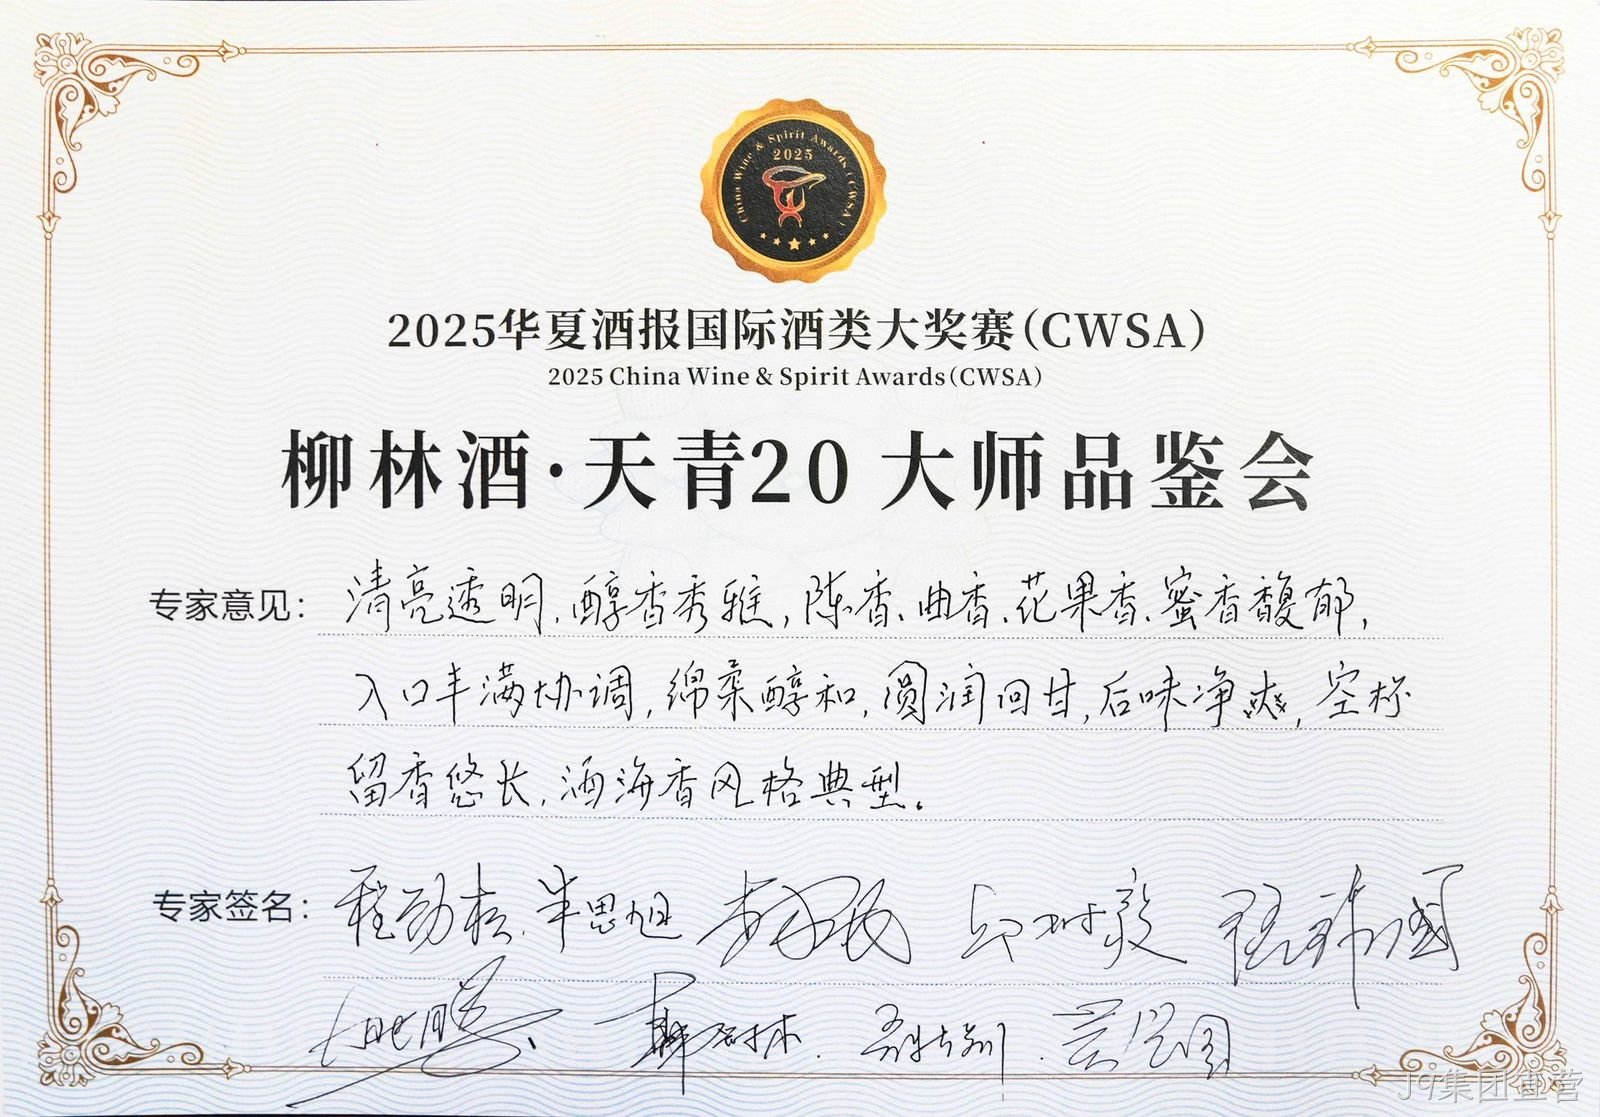 China Wine & Spirit Awards (CWSA)
2025
2025华夏酒报国际酒类大奖赛(CWSA)
2025 China Wine & Spirit Awards(CWSA)
柳林酒·天青20 大师品鉴会
专家意见: 清亮透明、醇香秀雅,陈香、曲香、花果香、蜜香馥郁,
入口丰满协调,绵柔醇和,圆润回甘,后味净爽,空杯
留香悠长,酒海香风格典型。
专家签名:
J9集团直营